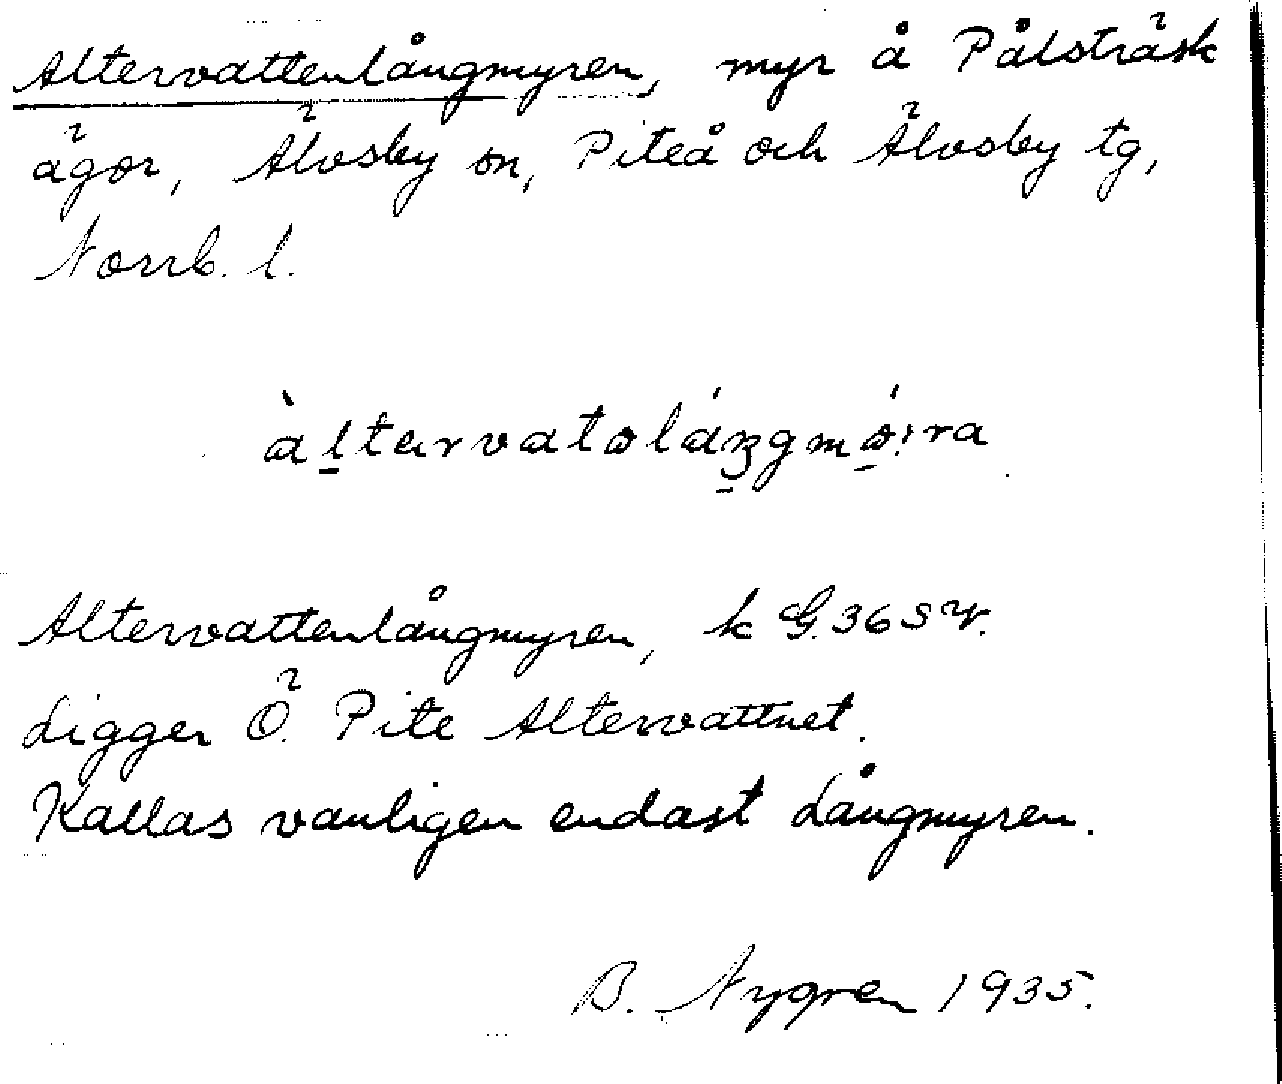 Altervattenlångmyren, myr å Pålsträsk
ägor, Älvsby sn, Piteå och Älvsby tg,
Norrb. l.
Altervattenlångmyren, k G. 36 SV.
Ligger Ö. Pite Altervattnet.
Kallas vanligen endast Långmyren.
B. Nygren 1935.